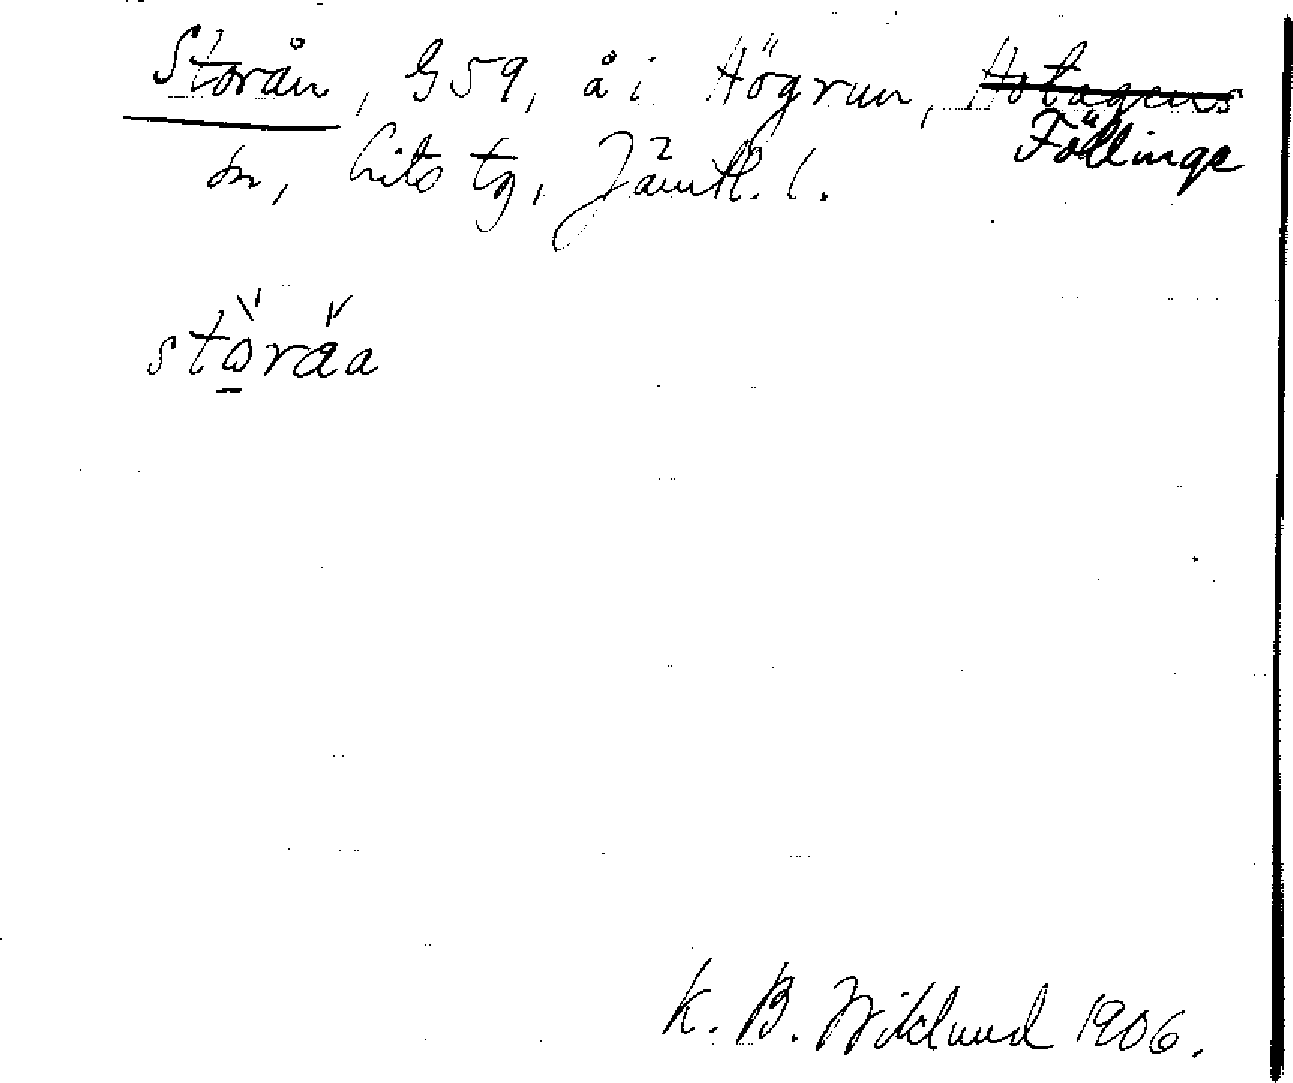 Storån, G59, å i Högrun, Hotagens
Föllinge
sn, Lits tg, Jämtl. l.
störåa
K. B. Wiklund 1906.